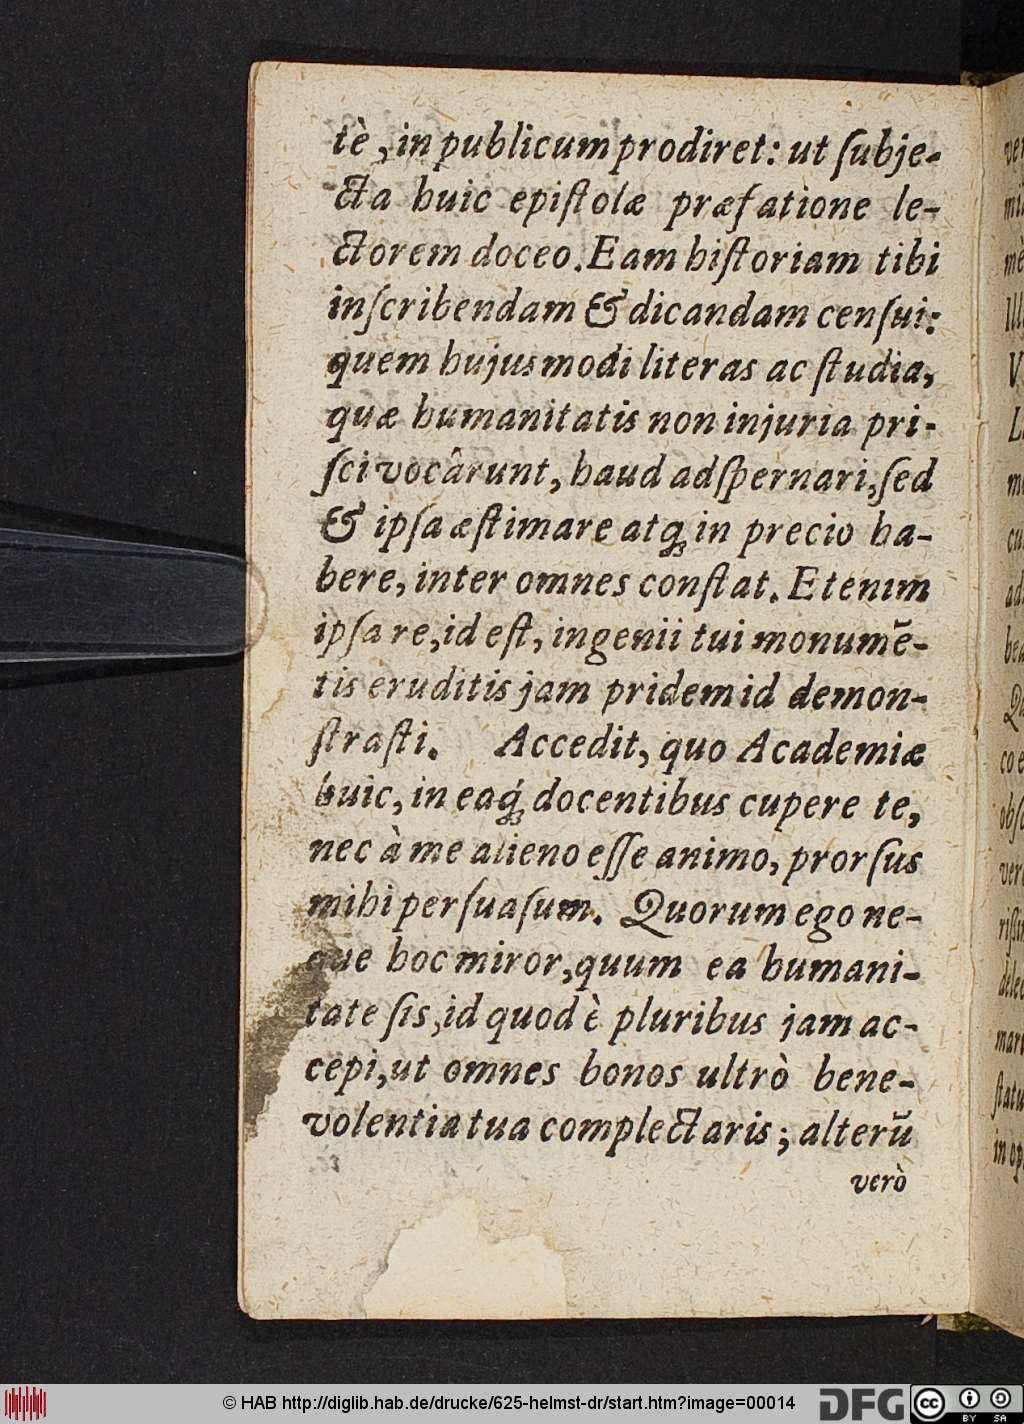 tè, in publicum prodiret: ut ſubje-
cta huic epiſtolæ præfatione le-
ctorem doceo. Eam hiſtoriam tibi
inſcribendam & dicandam cenſui:
quem hujusmodi literas ac ſtudia,
quæ humanitatis non injuria pri-
ſci vocârunt, haud adſpernari, ſed
& ipſa æſtimare atq; in precio ha-
bere, inter omnes conſtat. Etenim
ipſa re, id eſt, ingenii tui monumē-
tis eruditis jam pridem id demon-
ſtraſti. Accedit, quo Academiæ
huic, in eaq́; docentibus cupere te,
nec à me alieno eſſe animo, prorſus
mihi perſuaſum. Quorum ego ne-
que hoc miror, quum ea humani-
tate ſis, id quod è pluribus jam ac-
cepi, ut omnes bonos ultrò bene-
volentia tua complectaris; alterū
verò
© HAB http://diglib.hab.de/drucke/625-helmst-dr/start.htm?image=00014
DFG
cc BY SA